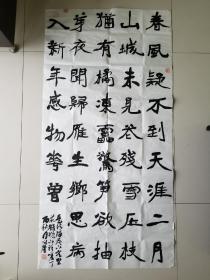 春風疑不到天涯二月
山城未見花殘雪压枝
猶有橘凍雷驚筍欲抽
芽夜聞歸雁生鄉思病
入新年感物華曾